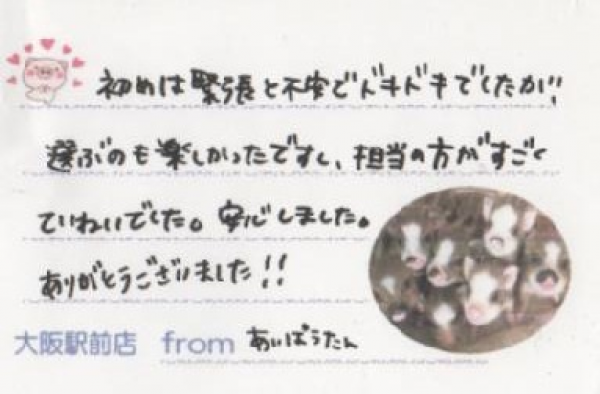 初めは緊張と不安でドキドキでしたが、
選ぶのも楽しかったですし、担当の方がすごく
ていねいでした。安心しました。
ありがとうございました!!
大阪駅前店 from あいぼうたん